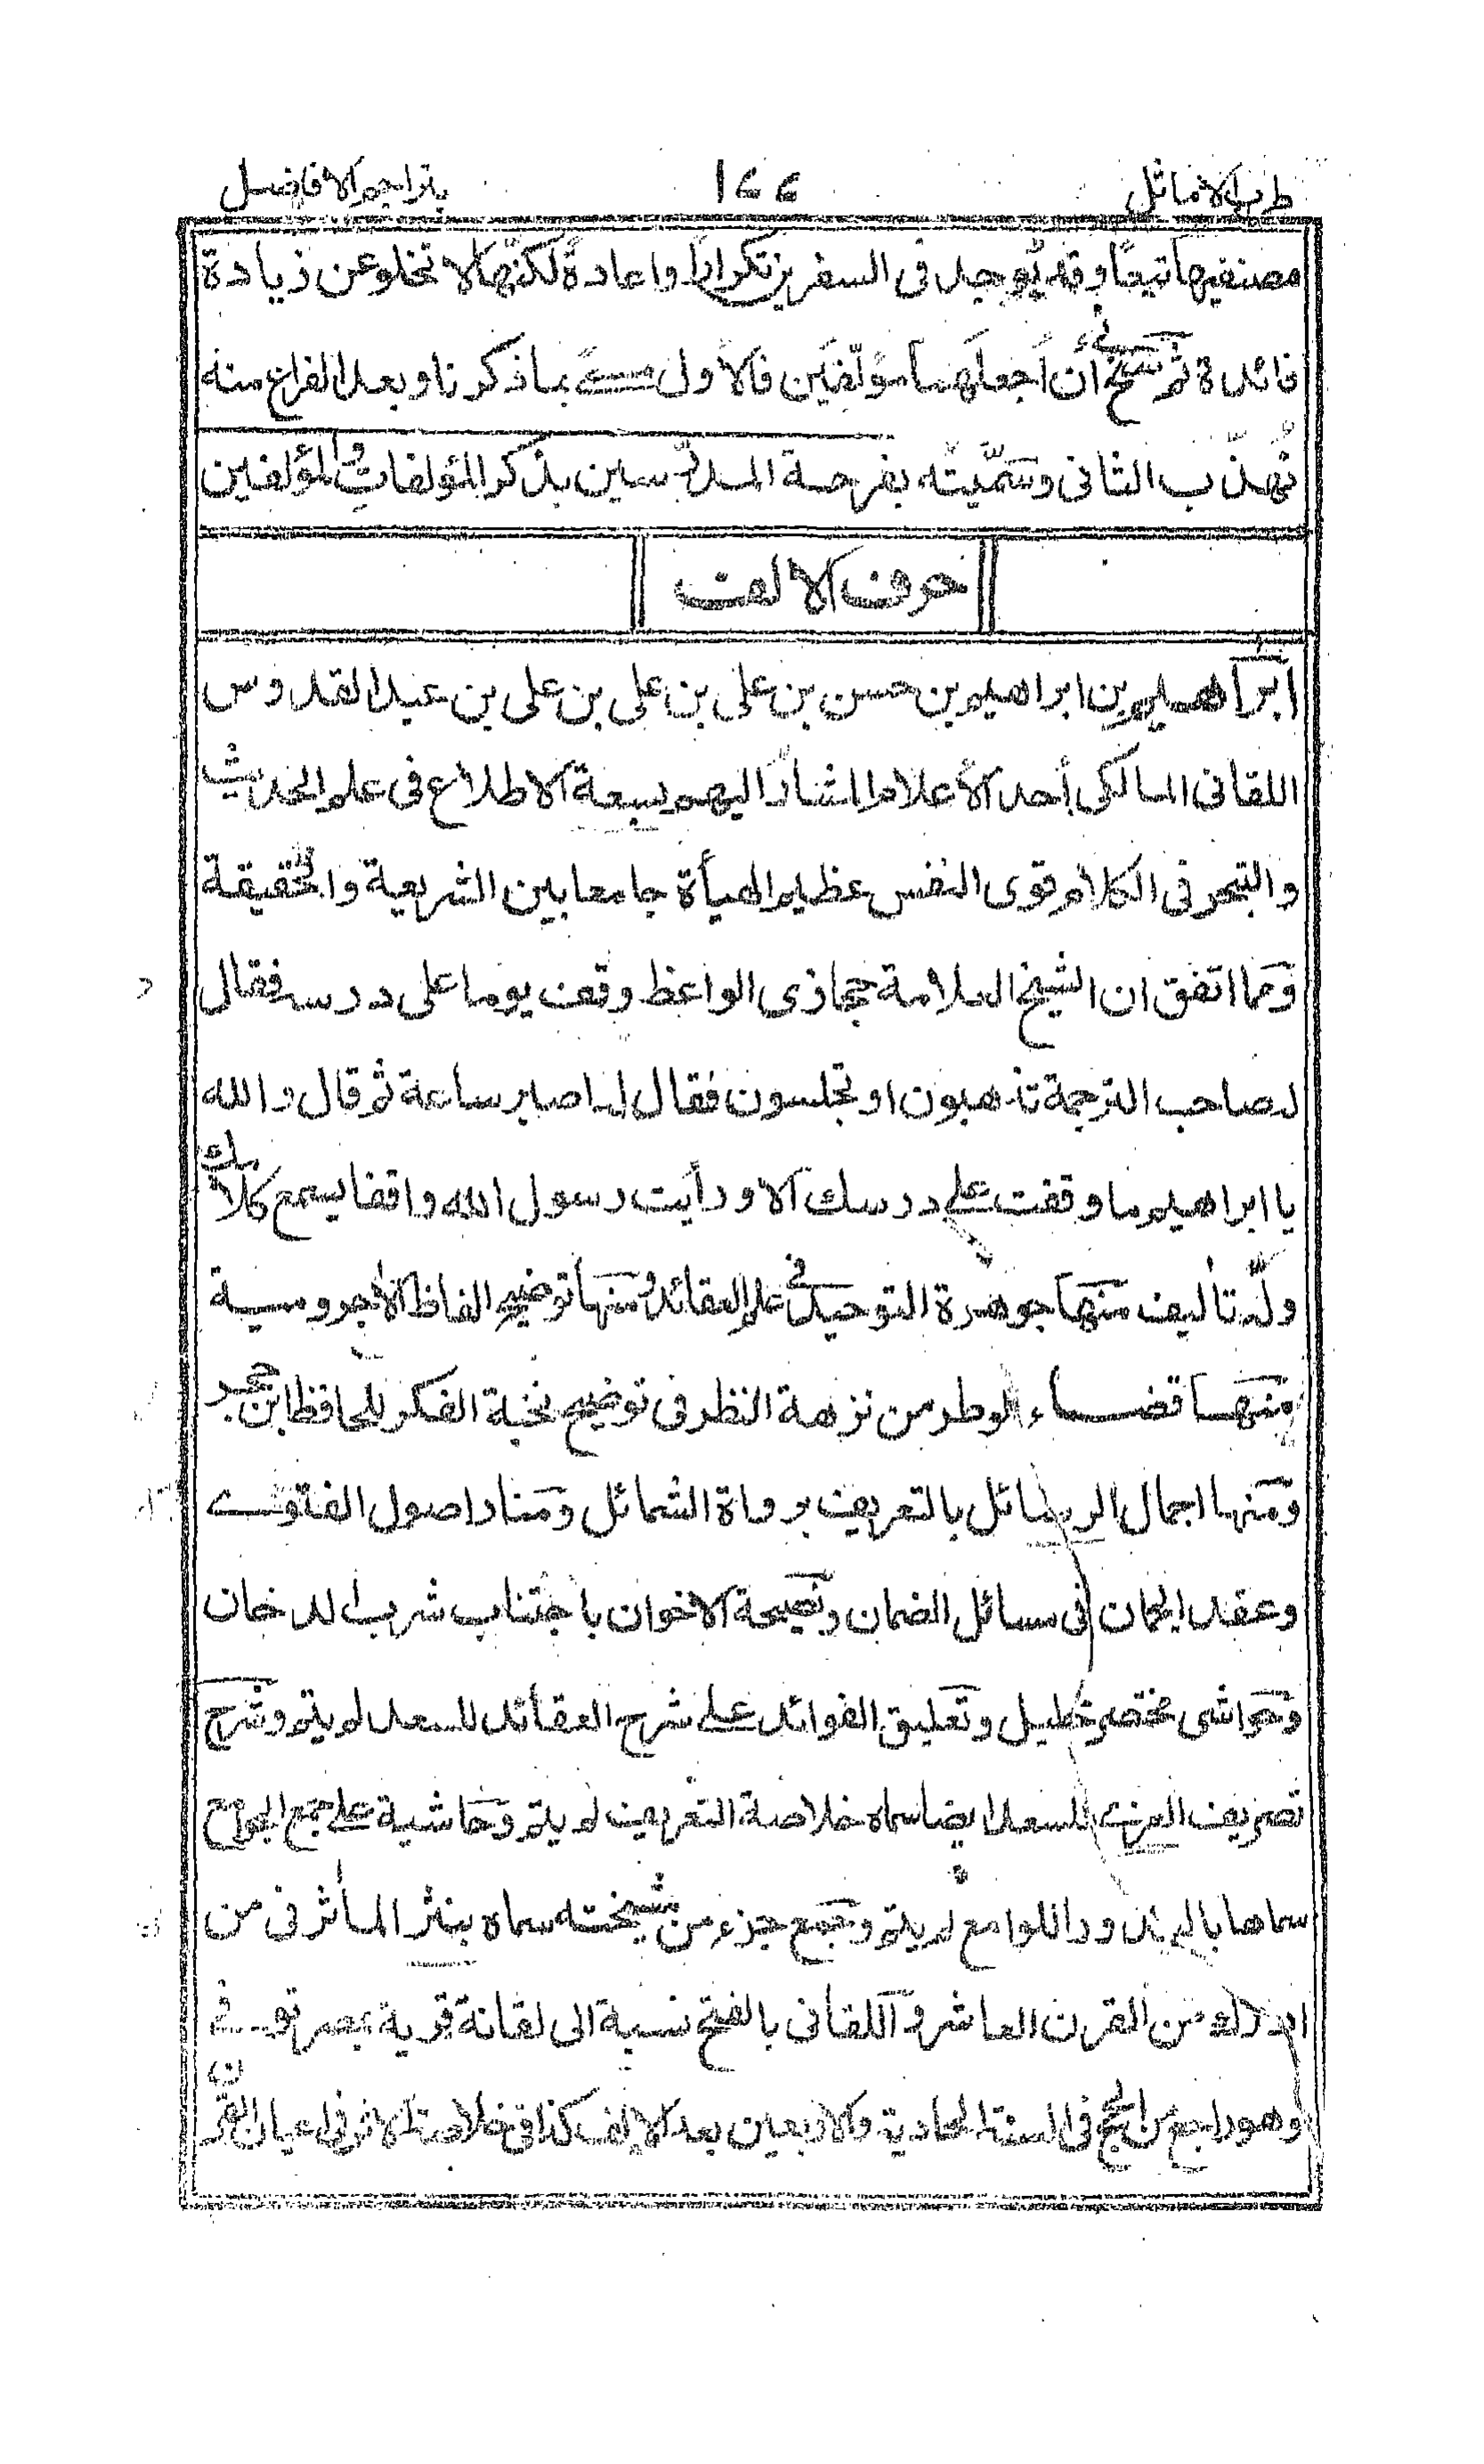 طرب الاماثل ١٧٧ بتراجم الافاضل
مصنفيها تيمنا وقد يوجد فى السفرين تكرارا واعادة لكنها لا تخلو عن زيادة
فائدة ثم سنح لى أن اجعلهما مؤلفين فالاول مسمى بما ذكرنا وبعد الفراغ منه
نهذب الثانى وسميته بفرحة المدرسين بذكر المؤلفات والمؤلفين
حرف الالف
ابراهيم بن ابراهيم بن حسن بن على بن على بن على بن عبد القدوس
اللقانى المالكى أحد الأعلام المشار اليهم بسعة الاطلاع فى علم الحديث
والتبحر فى الكلام قوى النفس عظيم الهيأة جامعا بين الشريعة والحقيقة
ومما اتفق ان الشيخ العلامة حجازى الواعظ وقف يوما على درسه فقال
له صاحب الترجمة تذهبون او تجلسون فقال له اصبر ساعة ثم قال والله
يا ابراهيم ما وقفت على درسك الا ورأيت رسول الله واقفا يسمع كلامك
وله تأليف منها جوهرة التوحيد فى علم العقائد ومنها توضيح الفاظ الاجرومية
منها قضاء الوطر من نزهة النظر فى توضيح نخبة الفكر للحافظ ابن حجر
ومنها اجمال الوسائل بالتعريف برواة الشمائل ومنار اصول الفتوى
وعقد الجمان فى مسائل الضمان ونصيحة الاخوان باجتناب شرب الدخان
وحواشى مختصر خليل وتعليق الفوائد على شرح العقائد للسعد لم يتم وشرح
تصريف العزى للسعد ايضا سماه خلاصة التعريف لم يتم وحاشية على جمع الجوامع
سماها بالبدور اللوامع لم يتم وجمع جزء من مشيخته سماه بنثر المأثر فى من
ادرك من القرن العاشر واللقانى بالفتح نسبة الى لقانة قرية بمصر توفى
وهو راجع من الحج فى السنة الحادية والاربعين بعد الالف كذا فى خلاصة الاثر فى اعيان القرن